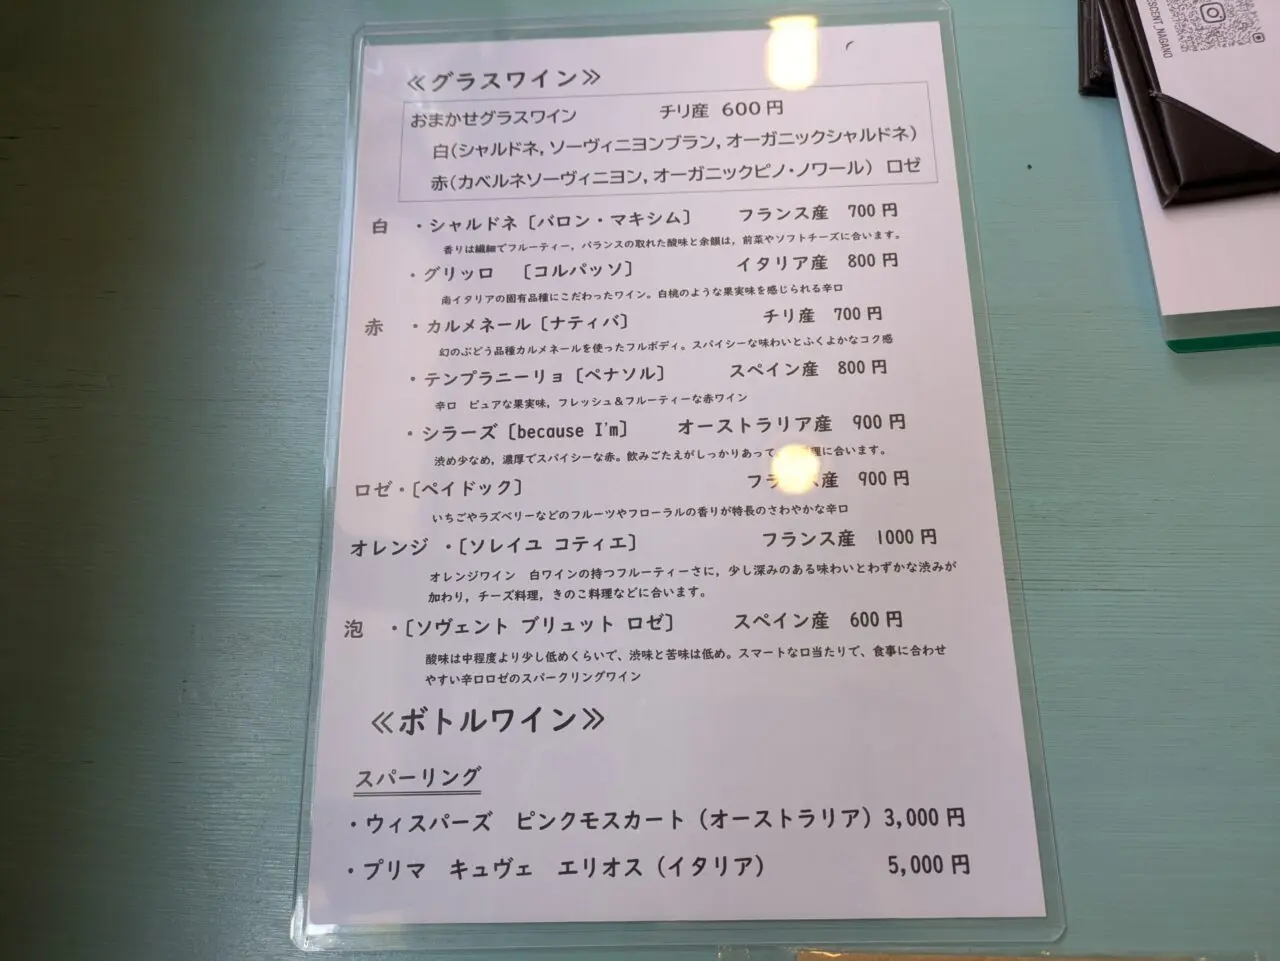 ≪グラスワイン≫
おまかせグラスワイン チリ産 600円
白(シャルドネ, ソーヴィニヨンブラン, オーガニックシャルドネ)
赤(カベルネソーヴィニヨン, オーガニックピノ・ノワール) ロゼ
白 ・シャルドネ〔バロン・マキシム〕 フランス産 700円
香りは繊細でフルーティー, バランスの取れた酸味と余韻は, 前菜やソフトチーズに合います。
・グリッロ 〔コルパッソ〕 イタリア産 800円
南イタリアの固有品種にこだわったワイン。白桃のような果実味を感じられる辛口
赤 ・カルメネール〔ナティバ〕 チリ産 700円
幻のぶどう品種カルメネールを使ったフルボディ。スパイシーな味わいとふくよかなコク感
・テンプラニーリョ〔ペナソル〕 スペイン産 800円
辛口 ピュアな果実味, フレッシュ&フルーティーな赤ワイン
・シラーズ〔because I'm〕 オーストラリア産 900円
渋め少なめ, 濃厚でスパイシーな赤。飲みごたえがしっかりあって 理に合います。
ロゼ・〔ペイドック〕 フランス産 900円
いちごやラズベリーなどのフルーツやフローラルの香りが特長のさわやかな辛口
オレンジ ・〔ソレイユ コティエ〕 フランス産 1000円
オレンジワイン 白ワインの持つフルーティーさに, 少し深みのある味わいとわずかな渋みが
加わり, チーズ料理, きのこ料理などに合います。
泡 ・〔ソヴェント ブリュット ロゼ〕 スペイン産 600円
酸味は中程度より少し低めくらいで、渋味と苦味は低め。スマートな口当たりで、食事に合わせ
やすい辛口ロゼのスパークリングワイン
≪ボトルワイン≫
スパーリング
・ウィスパーズ ピンクモスカート(オーストラリア) 3,000円
・プリマ キュヴェ エリオス(イタリア) 5,000円
ESCENT_NAGANO